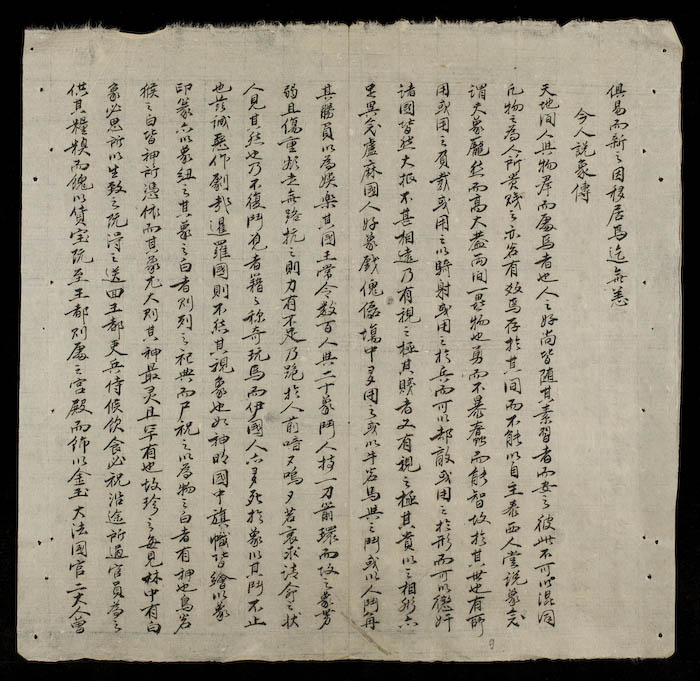 俱易而新之因移居焉迄無恙
今人說象傳
天地間人與物羣而處焉者也人之好尚皆随其素習者而安之彼此不可以混同
凡物之為人所貴賤之亦若有效焉存於其间而不能以自主泰西人嘗說象云
謂夫象龐然而高大盖两间一畏物也勇而不暴蠢而能智故於其世也有所
用或用之負戴或用之以騎射或用之於兵而可以却敵或用之於形而可以奸
诸國皆然大抵不甚相遠乃有視之極其賤者又有視之極其貴以之相形六
異矣盧麻國人好象戲傀儡塲中多用之或以牛若馬與之鬥或以人鬥每
其勝負以為娛楽其國王常令数百人與二十象鬥人持一刀箭環而攻之象势
弱且傷重欲走無路抗之則力有不足乃跪於人前喑又鳴又若哀求请命之状
人見其然也乃不復鬥見者籍之称奇玩焉而伊國人六多死於象以其鬥不止
也兹诚惡作劇哉暹羅國則不然其視象也如神明國中旗幟皆繪以象
印篆六以象紐之其象之白者則列之祀典而尸祝之以為物之白者有神也鳥若
猴之白皆神所憑依而其象尤大則其神最灵且罕有也故珍之每見林中有白
象必思所以生致之既得之送回王都吏兵侍候飲食必祝沿途所過官員為之
供其糧糗而餽以貨宝既至王都則處之宮殿而飾以金玉大法國官二丈人曾
9